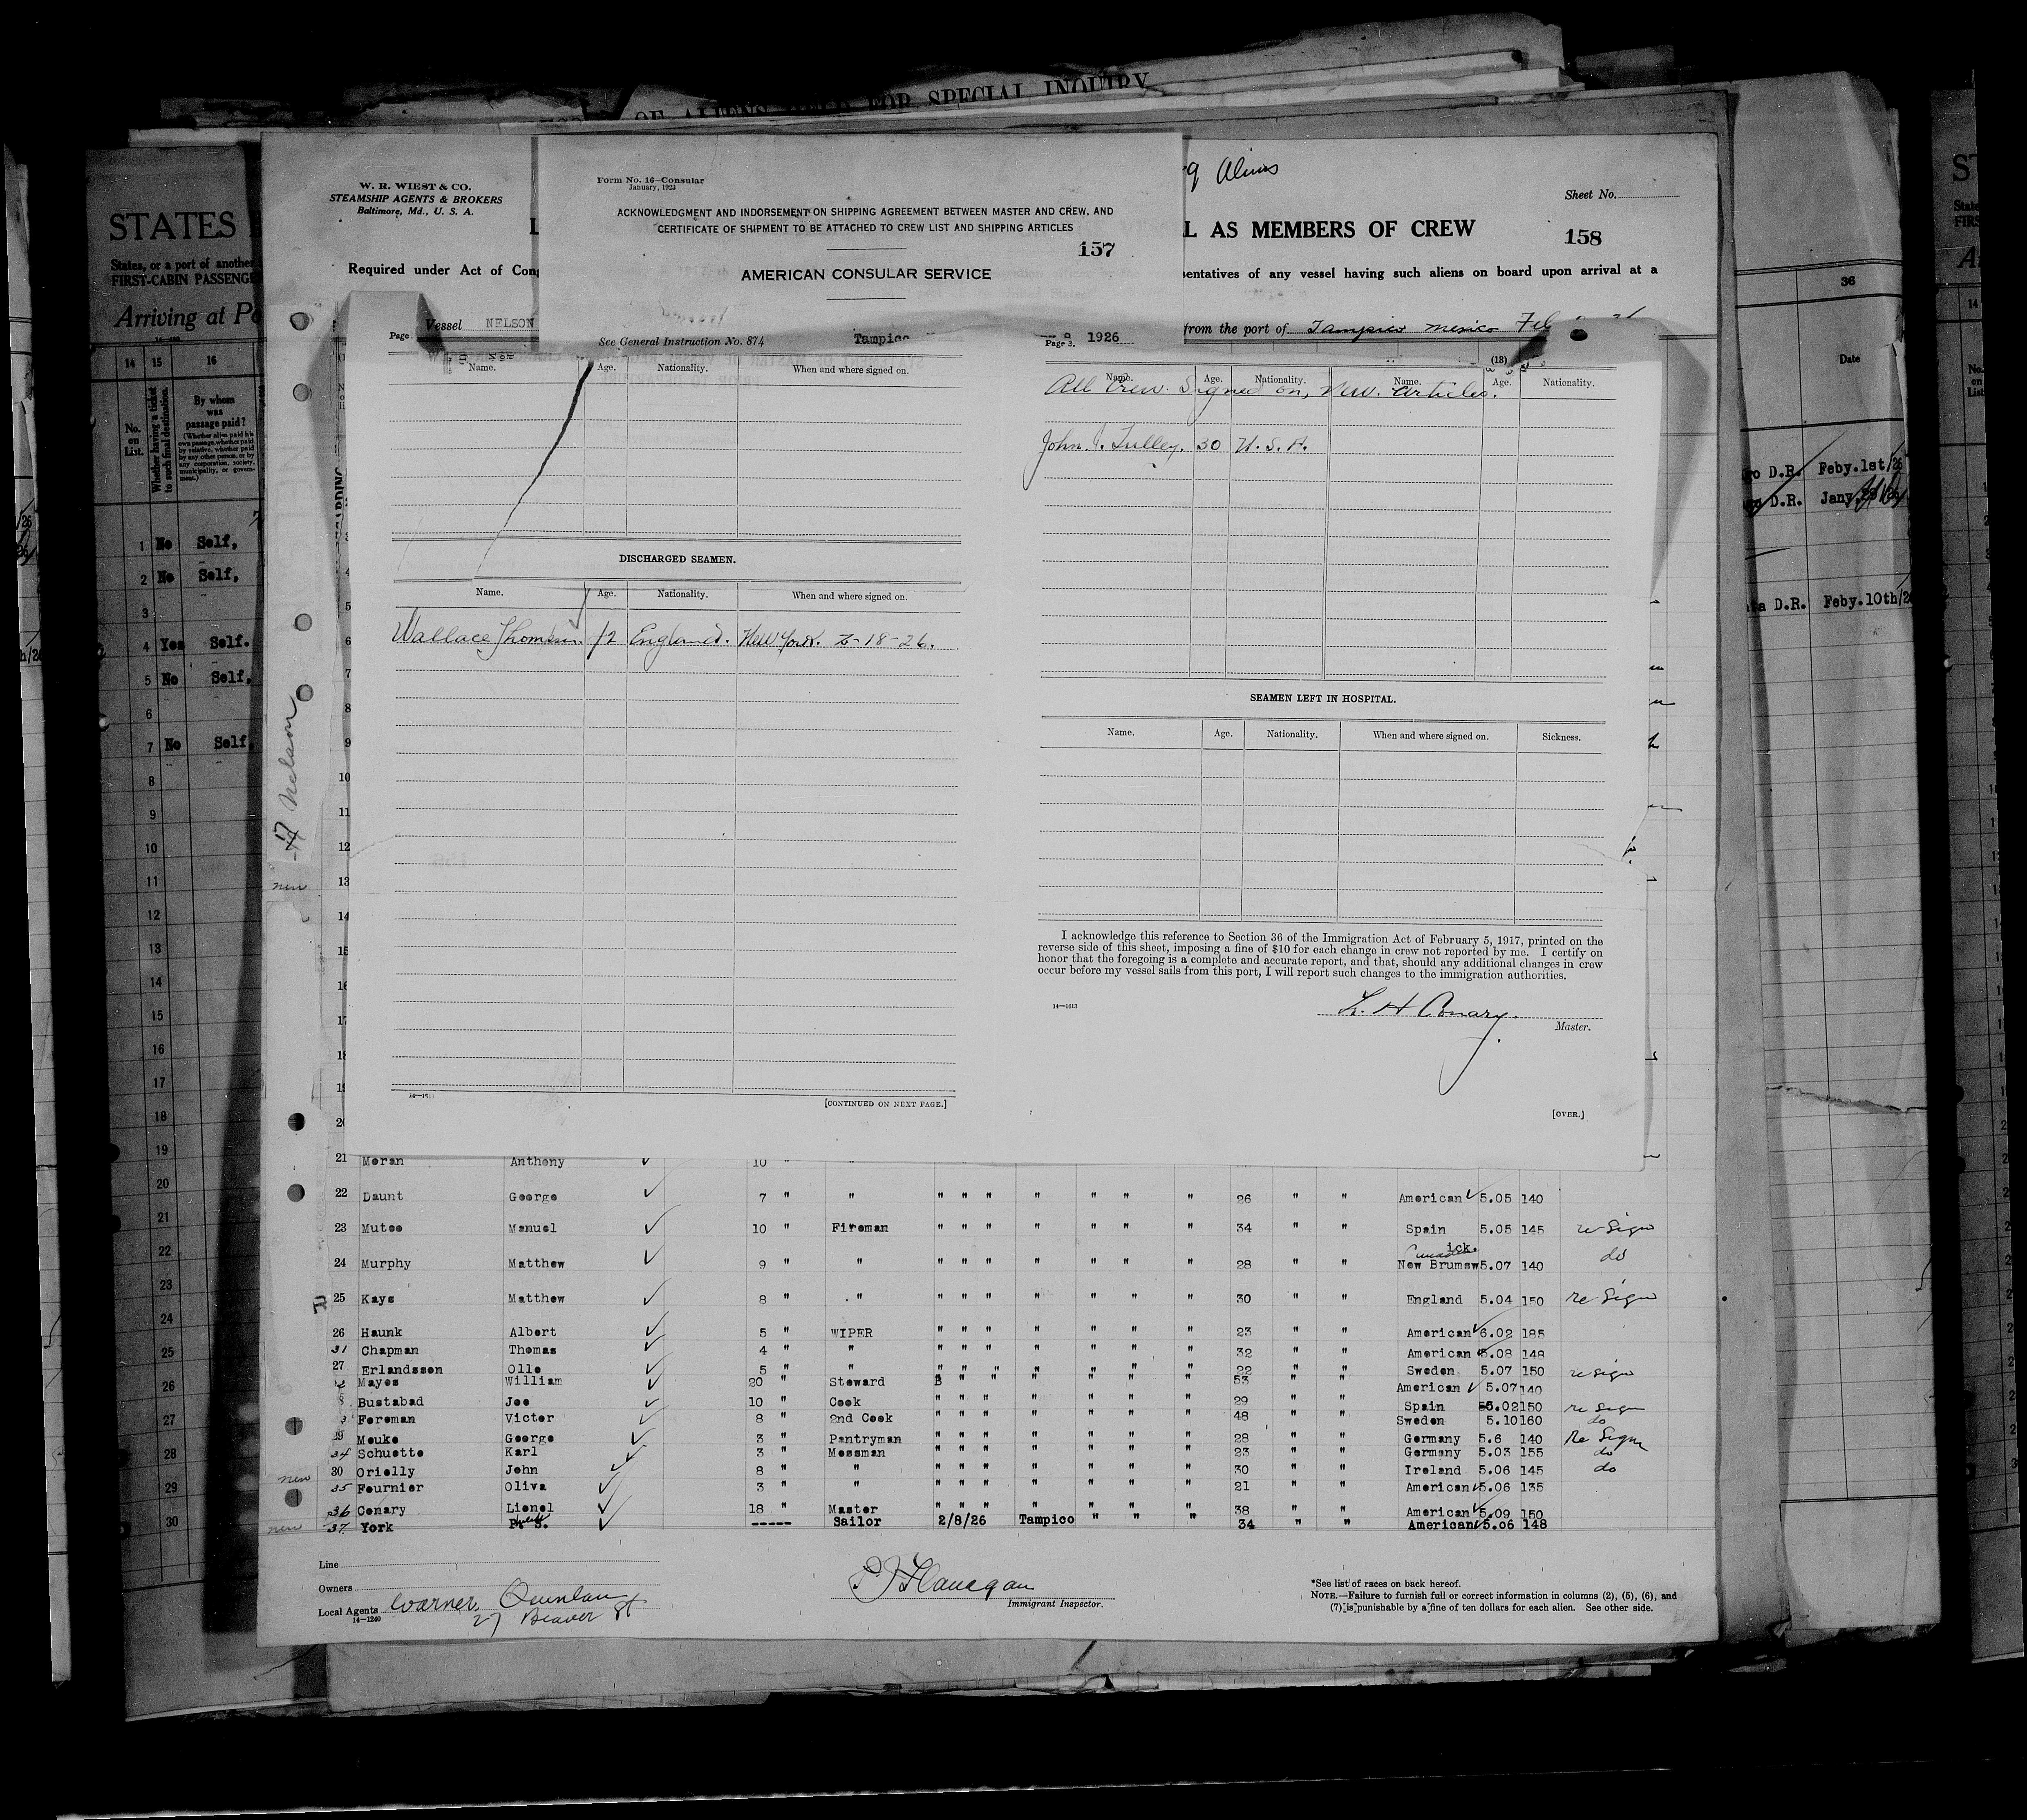 OF ALIENS HELD FOR SPECIAL INQUIRY
W. R. WIEST & CO.
STEAMSHIP AGENTS & BROKERS
Baltimore, Md., U. S. A.
Form No. 16—Consular
January, 1923
ACKNOWLEDGMENT AND INDORSEMENT ON SHIPPING AGREEMENT BETWEEN MASTER AND CREW, AND
CERTIFICATE OF SHIPMENT TO BE ATTACHED TO CREW LIST AND SHIPPING ARTICLES
157
AMERICAN CONSULAR SERVICE
See General Instruction No. 874 Tampico 1926
Aliens
Sheet No.
L AS MEMBERS OF CREW
158
Required under Act of Cong
sentatives of any vessel having such aliens on board upon arrival at a
Vessel NELSON
from the port of Tampico Mexico Feb
STATES
States, or a port of another
FIRST-CABIN PASSENG
Arriving at Po
14 15 16
No. on List.
Whether having a ticket to such final destination.
By whom was passage paid?
(Whether alien paid his own passage, whether paid by relative, whether paid by any other person, or by any corporation, society, municipality, or government.)
1 No Self,
2 No Self,
3
4 Yes Self.
5 No Self,
6
7 No Self,
8
9
10
11
12
13
14
15
16
17
18
19
20
21
22
23
24
25
26
27
28
29
30
Nelson
new
Page
Name. Age. Nationality. When and where signed on.
DISCHARGED SEAMEN.
Name. Age. Nationality. When and where signed on.
Wallace Thomson. England. New York. 18-26.
[CONTINUED ON NEXT PAGE.]
Page 3.
(13)
Name. Age. Nationality. Name. Age. Nationality.
All Crew. Signed on, New. Articles.
John. Tulley. 30 U. S. A.
SEAMEN LEFT IN HOSPITAL.
Name. Age. Nationality. When and where signed on. Sickness.
I acknowledge this reference to Section 36 of the Immigration Act of February 5, 1917, printed on the
reverse side of this sheet, imposing a fine of $10 for each change in crew not reported by me. I certify on
honor that the foregoing is a complete and accurate report, and that, should any additional changes in crew
occur before my vessel sails from this port, I will report such changes to the immigration authorities.
14—1613
L. H Conary.
Master.
[OVER.]
36
Date
D.R. Feby.1st/26
D.R. Jany.
D.R. Feby.10th/2
5
6
7
8
9
10
11
12
13
14
15
16
17
18
19
20
21 Moran Anthony 10 "
22 Daunt George 7 " " " " " " " " " 26 " " American 5.05 140
23 Mutoo Manuel 10 " Fireman " " " " " " " 34 " " Spain 5.05 145 re Sign
24 Murphy Matthew 9 " " " " " " " " " 28 " " Canada New Brunswick. 5.07 140 do
25 Kays Matthew 8 " " " " " " " " " 30 " " England 5.04 150 re Sign
26 Haunk Albert 5 " WIPER " " " " " " " 23 " " American 6.02 185
31 Chapman Thomas 4 " " " " " " " " " 32 " " American 5.08 148
27 Erlandsson Olle 5 " " " " " " " " " 22 " " Sweden 5.07 150 re sign
Mayes William 20 " Steward " " " " " " 53 " " American 5.07 140
8 Bustabad Jose 10 " Cook " " " " " " " 29 " " Spain 5.02 150 re Sign
Foreman Victor 8 " 2nd Cook " " " " " " " 48 " " Sweden 5.10 160 do
29 Meuke George 3 " Pantryman " " " " " " " 28 " " Germany 5.6 140 Re Sign
34 Schuette Karl 3 " Messman " " " " " " " 23 " " Germany 5.03 155 do
new 30 Orielly John 8 " " " " " " " " " 30 " " Ireland 5.06 145 do
35 Fournier Oliva 3 " " " " " " " " " 21 " " American 5.06 135
36 Conary Lionel 18 " Master " " " " " " " 38 " " American 5.09 150
new 37 York P. S. ----- Sailor 2/8/26 Tampico " " " 34 " " American 5.06 148
Line
Owners
Local Agents Warner, Quinlan
27 Beaver St
14—1240
P J Flanegan
Immigrant Inspector.
*See list of races on back hereof.
NOTE.—Failure to furnish full or correct information in columns (2), (5), (6), and
(7) is punishable by a fine of ten dollars for each alien. See other side.